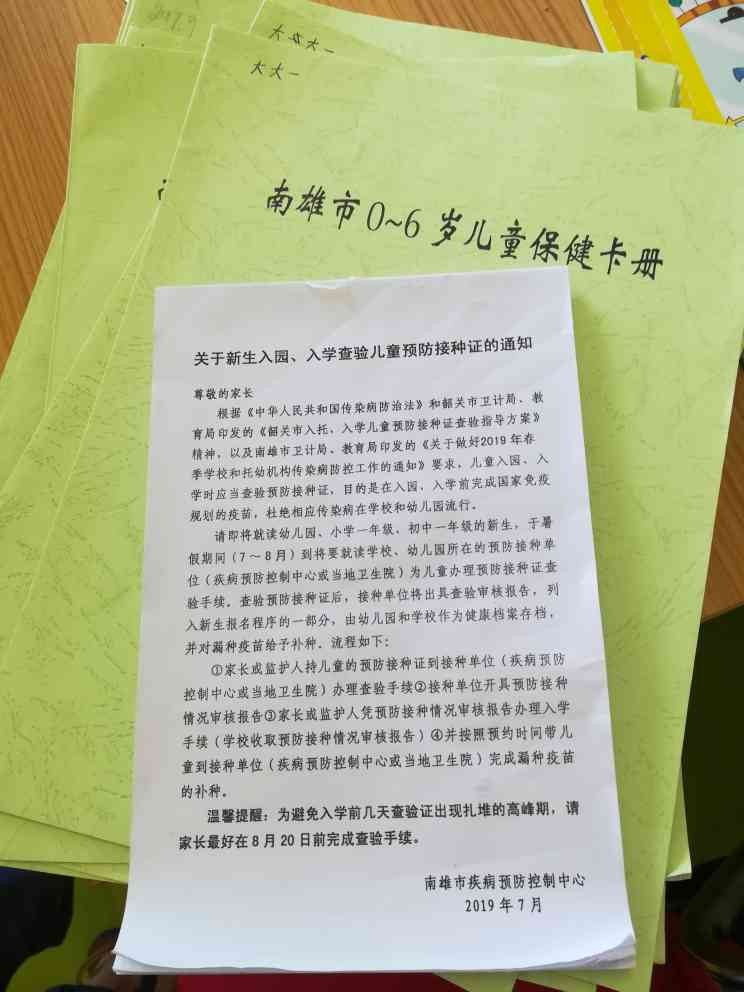 大大一
南雄市0~6岁儿童保健卡册
关于新生入园、入学查验儿童预防接种证的通知
尊敬的家长
根据《中华人民共和国传染病防治法》和韶关市卫计局、教
育局印发的《韶关市入托、入学儿童预防接种证查验指导方案》
精神，以及南雄市卫计局、教育局印发的《关于做好2019年春
季学校和托幼机构传染病防控工作的通知》要求，儿童入园、入
学时应当查验预防接种证，目的是在入园、入学前完成国家免疫
规划的疫苗，杜绝相应传染病在学校和幼儿园流行。
请即将就读幼儿园、小学一年级、初中一年级的新生，于暑
假期间（7～8月）到将要就读学校、幼儿园所在的预防接种单
位（疾病预防控制中心或当地卫生院）为儿童办理预防接种证查
验手续。查验预防接种证后，接种单位将出具查验审核报告，列
入新生报名程序的一部分，由幼儿园和学校作为健康档案存档，
并对漏种疫苗给予补种。流程如下：
①家长或监护人持儿童的预防接种证到接种单位（疾病预防
控制中心或当地卫生院）办理查验手续②接种单位开具预防接种
情况审核报告③家长或监护人凭预防接种情况审核报告办理入学
手续（学校收取预防接种情况审核报告）④并按照预约时间带儿
童到接种单位（疾病预防控制中心或当地卫生院）完成漏种疫苗
的补种。
温馨提醒：为避免入学前几天查验证出现扎堆的高峰期，请
家长最好在8月20日前完成查验手续。
南雄市疾病预防控制中心
2019年7月